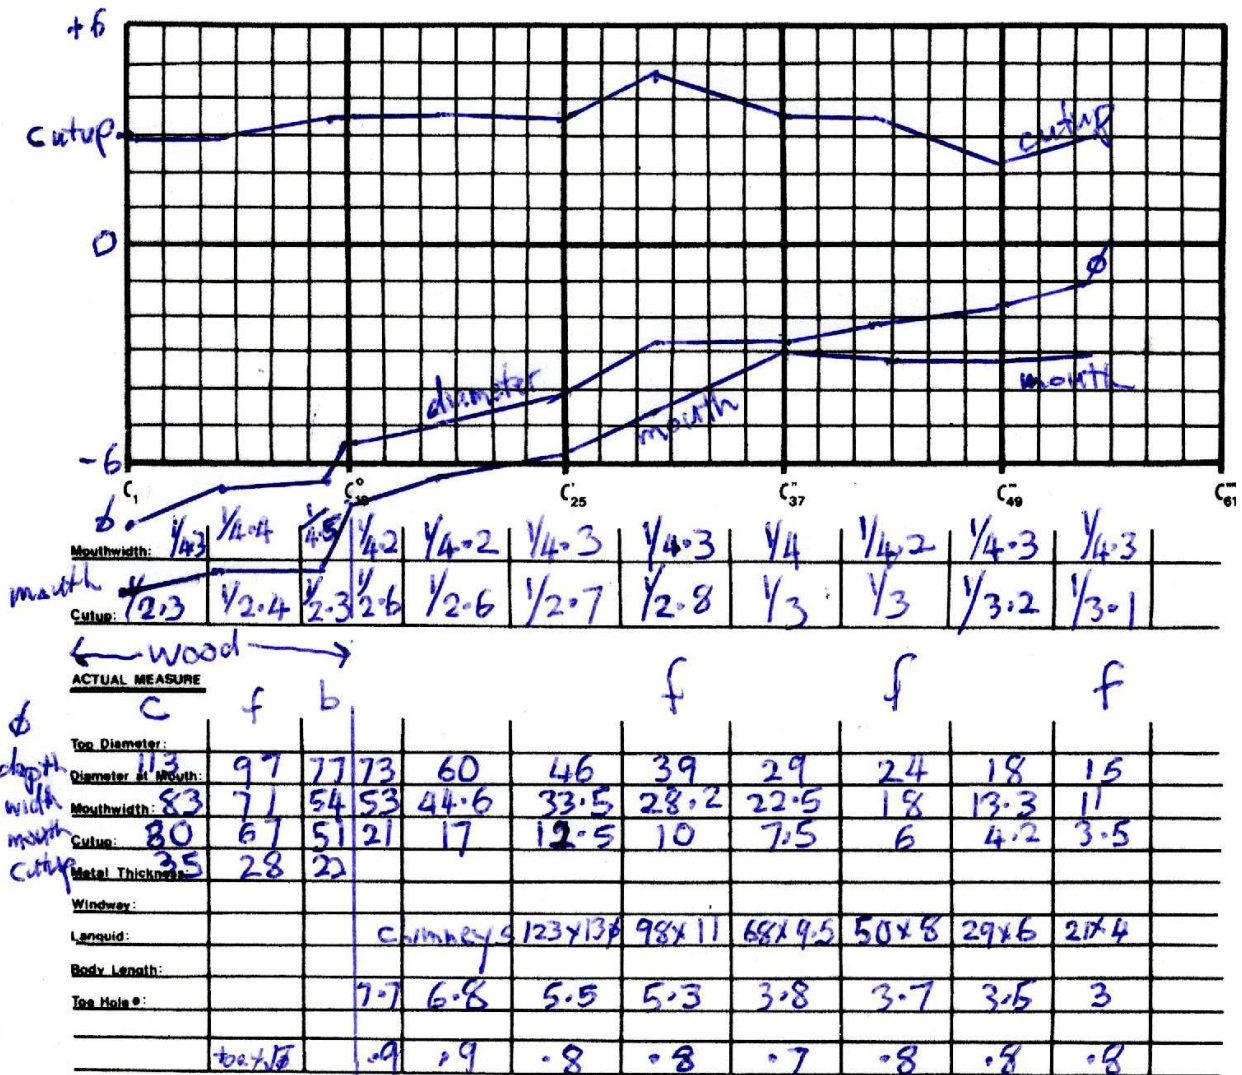 +6
cutup
cutup
0
ϕ
diameter
mouth
mouth
-6
C1 C°13 C'25 C''37 C'''49 C''''61
ϕ
Mouthwidth: 1/4.3 1/4.4 1/4.5 1/4.2 1/4.2 1/4.3 1/4.3 1/4 1/4.2 1/4.3 1/4.3
mouth
Cutup: 1/2.3 1/2.4 1/2.3 1/2.6 1/2.6 1/2.7 1/2.8 1/3 1/3 1/3.2 1/3.1
← wood →
ACTUAL MEASURE
C f b f f f
ϕ
Top Diameter:
depth Diameter at Mouth: 113 97 77 73 60 46 39 29 24 18 15
width Mouthwidth: 83 71 54 53 44.6 33.5 28.2 22.5 18 13.3 11
mouth Cutup: 80 67 51 21 17 12.5 10 7.5 6 4.2 3.5
cutup Metal Thickness: 35 28 22
Windway:
Languid: chimneys 123x13ϕ 98x11 68x9.5 50x8 29x6 21x4
Body Length:
Toe Hole ø: 7.7 6.8 5.5 5.3 3.8 3.7 3.5 3
.9 .9 .8 .8 .7 .8 .8 .8